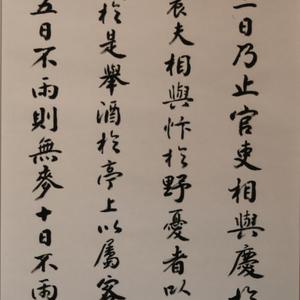 日乃止官吏相與慶於
農夫相與忭於野憂者以
於是舉酒於亭上以屬客
五日不雨則無麥十日不雨